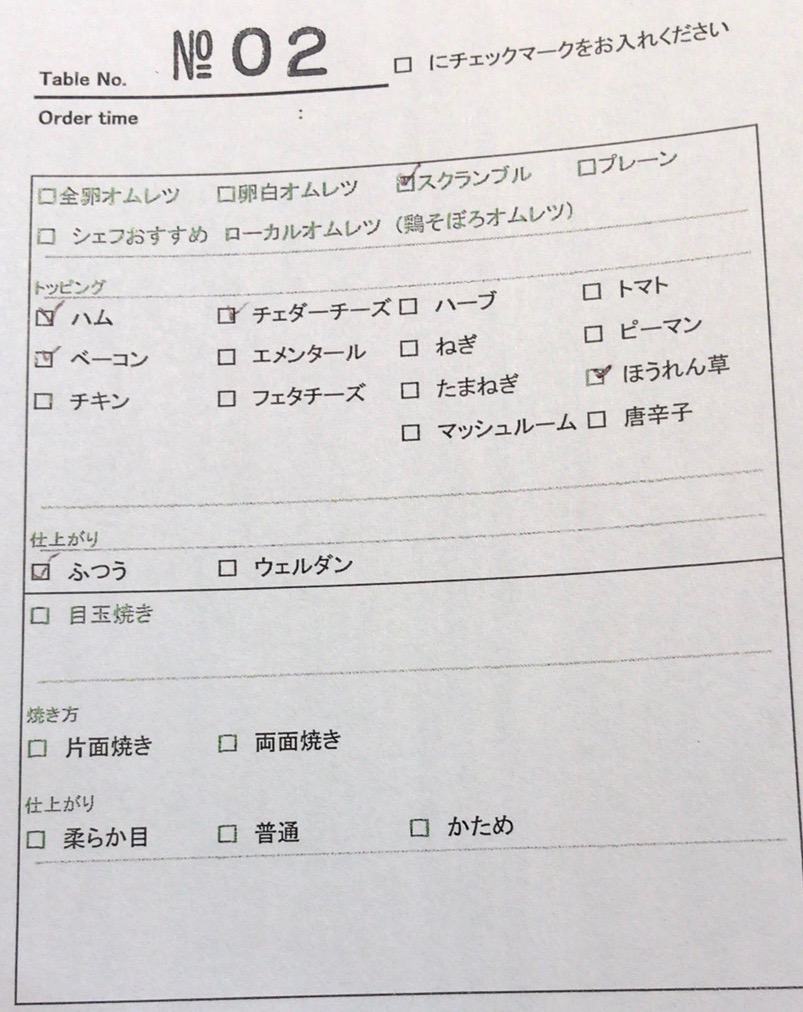 Table No. № 02 □ にチェックマークをお入れください
Order time :
□全卵オムレツ □卵白オムレツ ☑スクランブル □プレーン
□ シェフおすすめ ローカルオムレツ (鶏そぼろオムレツ)
トッピング
☑ ハム ☑ チェダーチーズ □ ハーブ □ トマト
☑ ベーコン □ エメンタール □ ねぎ □ ピーマン
□ チキン □ フェタチーズ □ たまねぎ ☑ ほうれん草
□ マッシュルーム □ 唐辛子
仕上がり
☑ ふつう □ ウェルダン
□ 目玉焼き
焼き方
□ 片面焼き □ 両面焼き
仕上がり
□ 柔らか目 □ 普通 □ かため